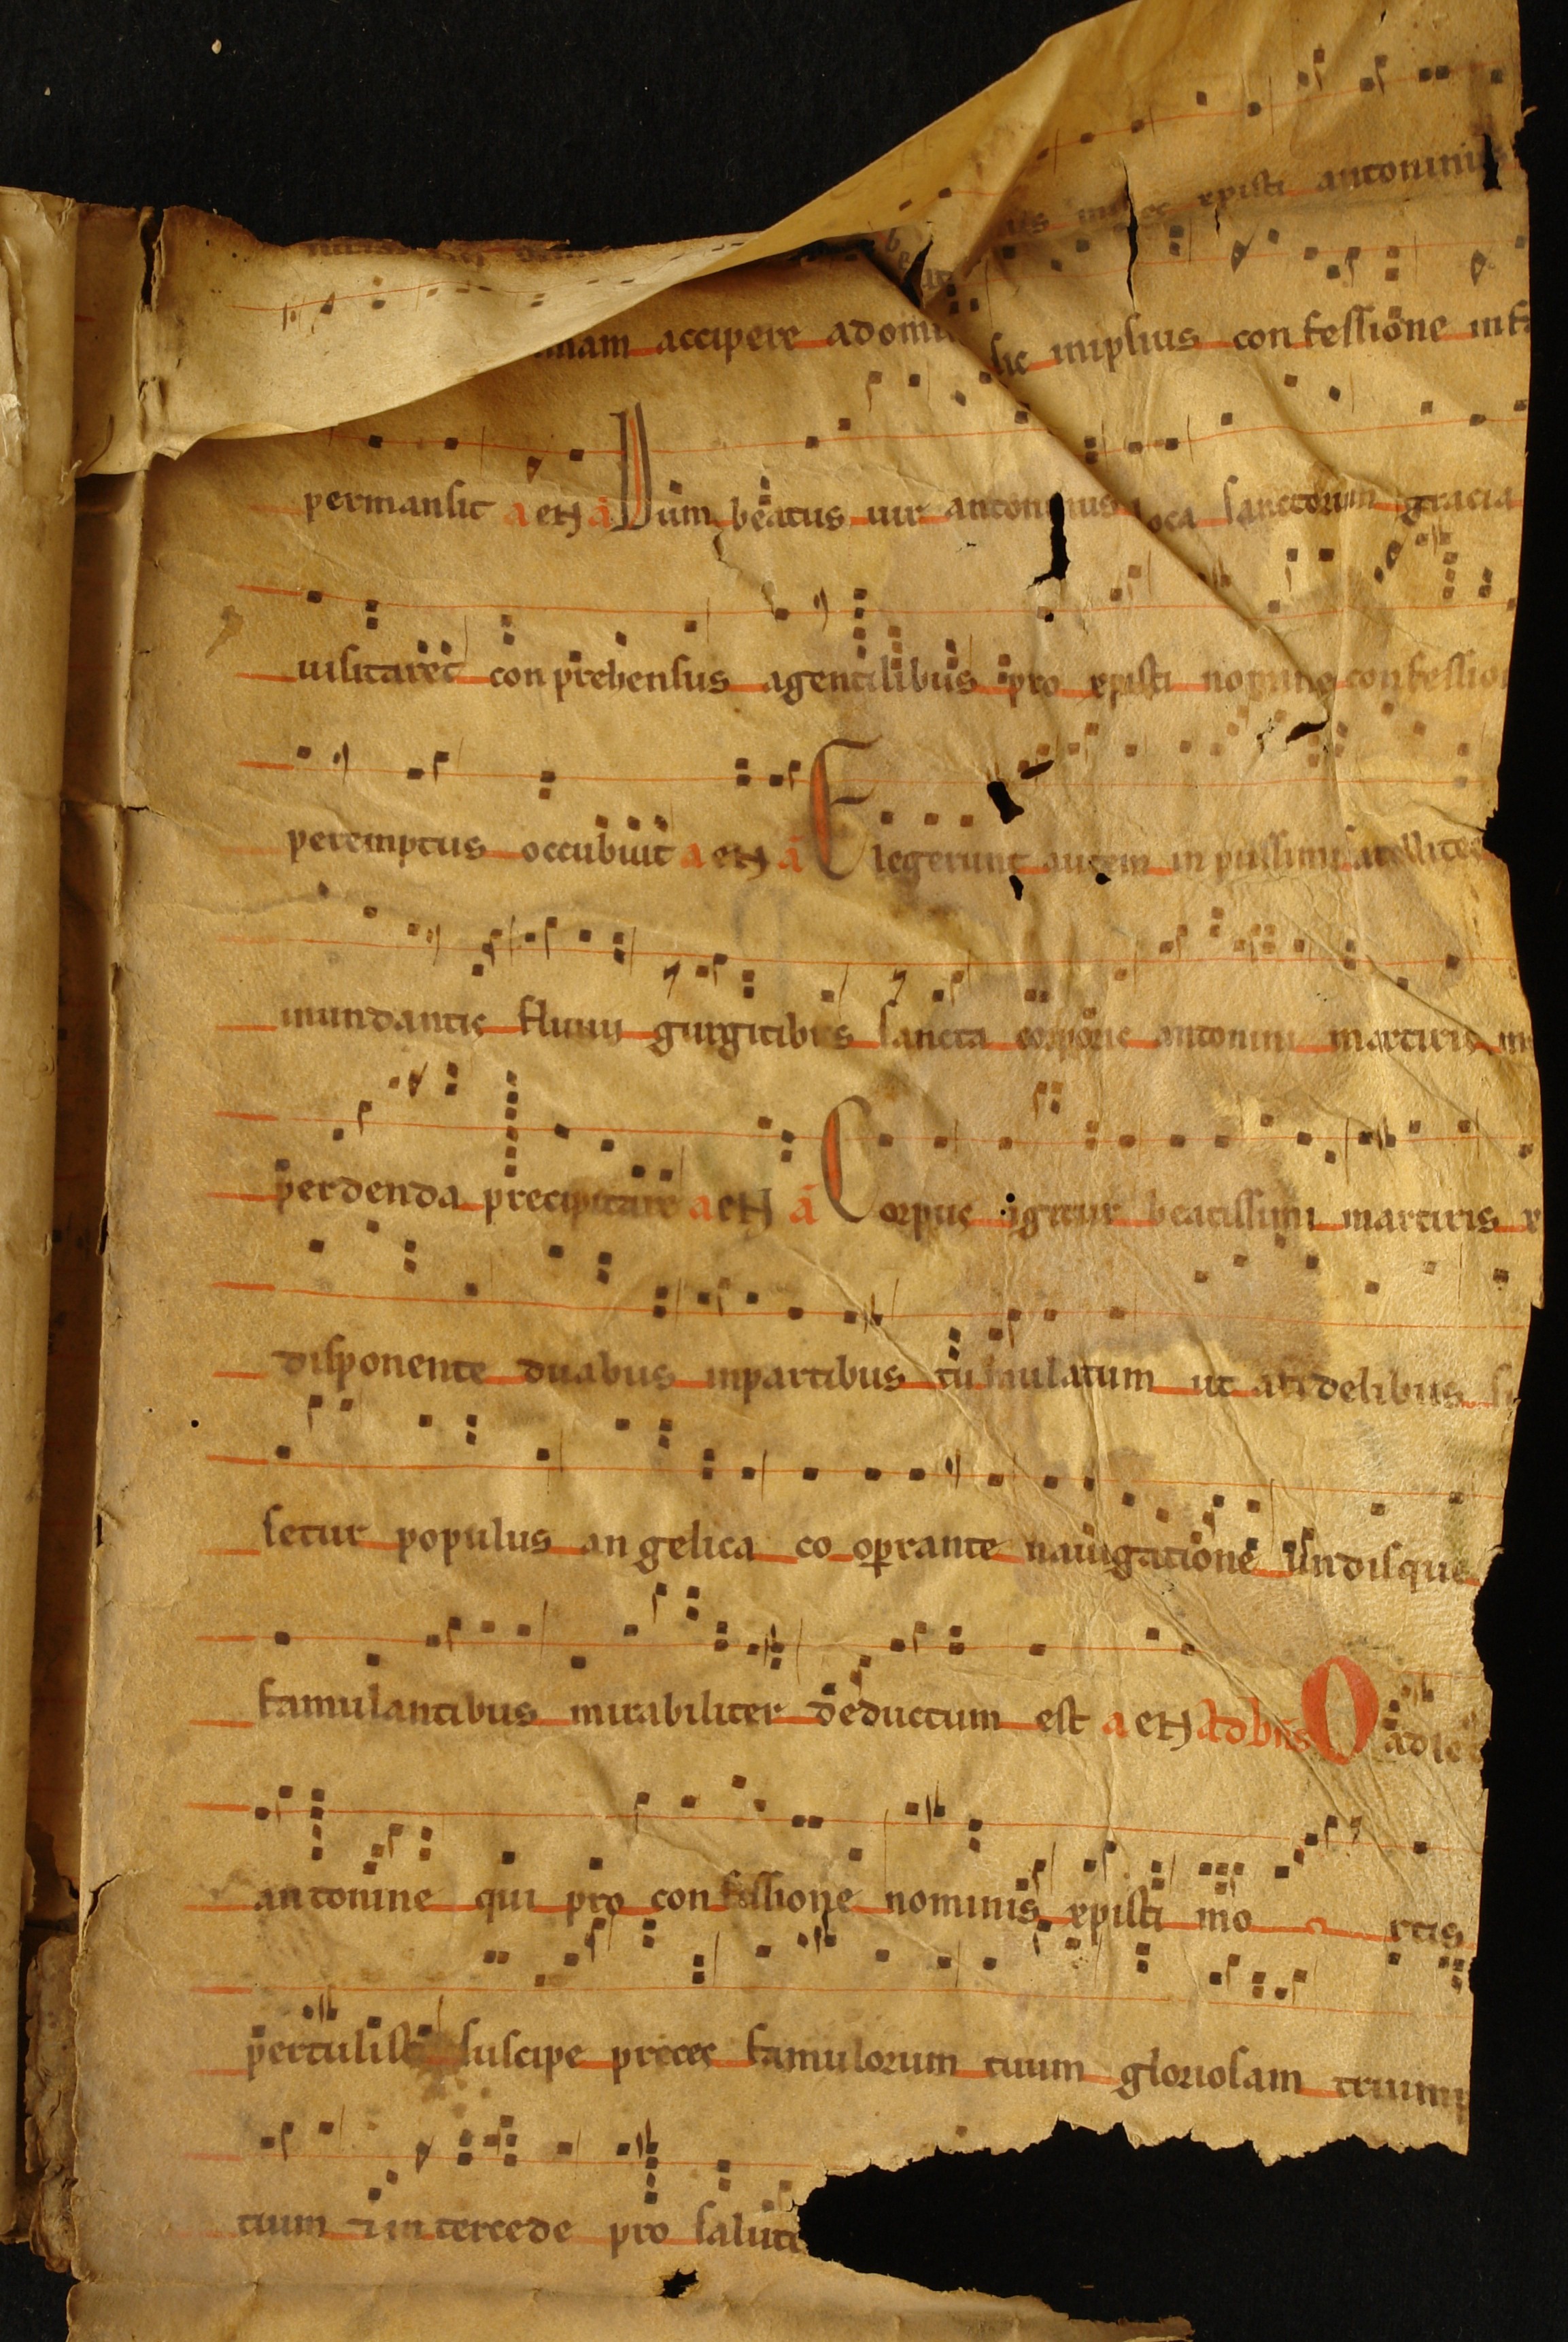 xpisti antoninus
accipere adomi sic inipsius confessione
permansit a eH a Dum beatus uir antoninus loca sanctorum gracia
uisitaret conprehensus agentilibus pro xpisti nomine confessio
peremptus occubuit a eH a Elegerunt autem inpiissimi satellites
inundantis fluuii gurgitibus sancta corporis antonini martiris in
perdenda precipitare a eH a Corpus igitur beatissimi martiris x
disponente duabus inpartibus tumulatum ut afidelibus si
setur populus angelica cooperante nauigatione undisque
famulantibus mirabiliter deductum est a eH adbns O adle
antonine qui pro confessione nominis xpisti mo rtis
pertulisti suscipe preces famulorum tuum gloriosam triump
tuum ⁊ intercede pro salute